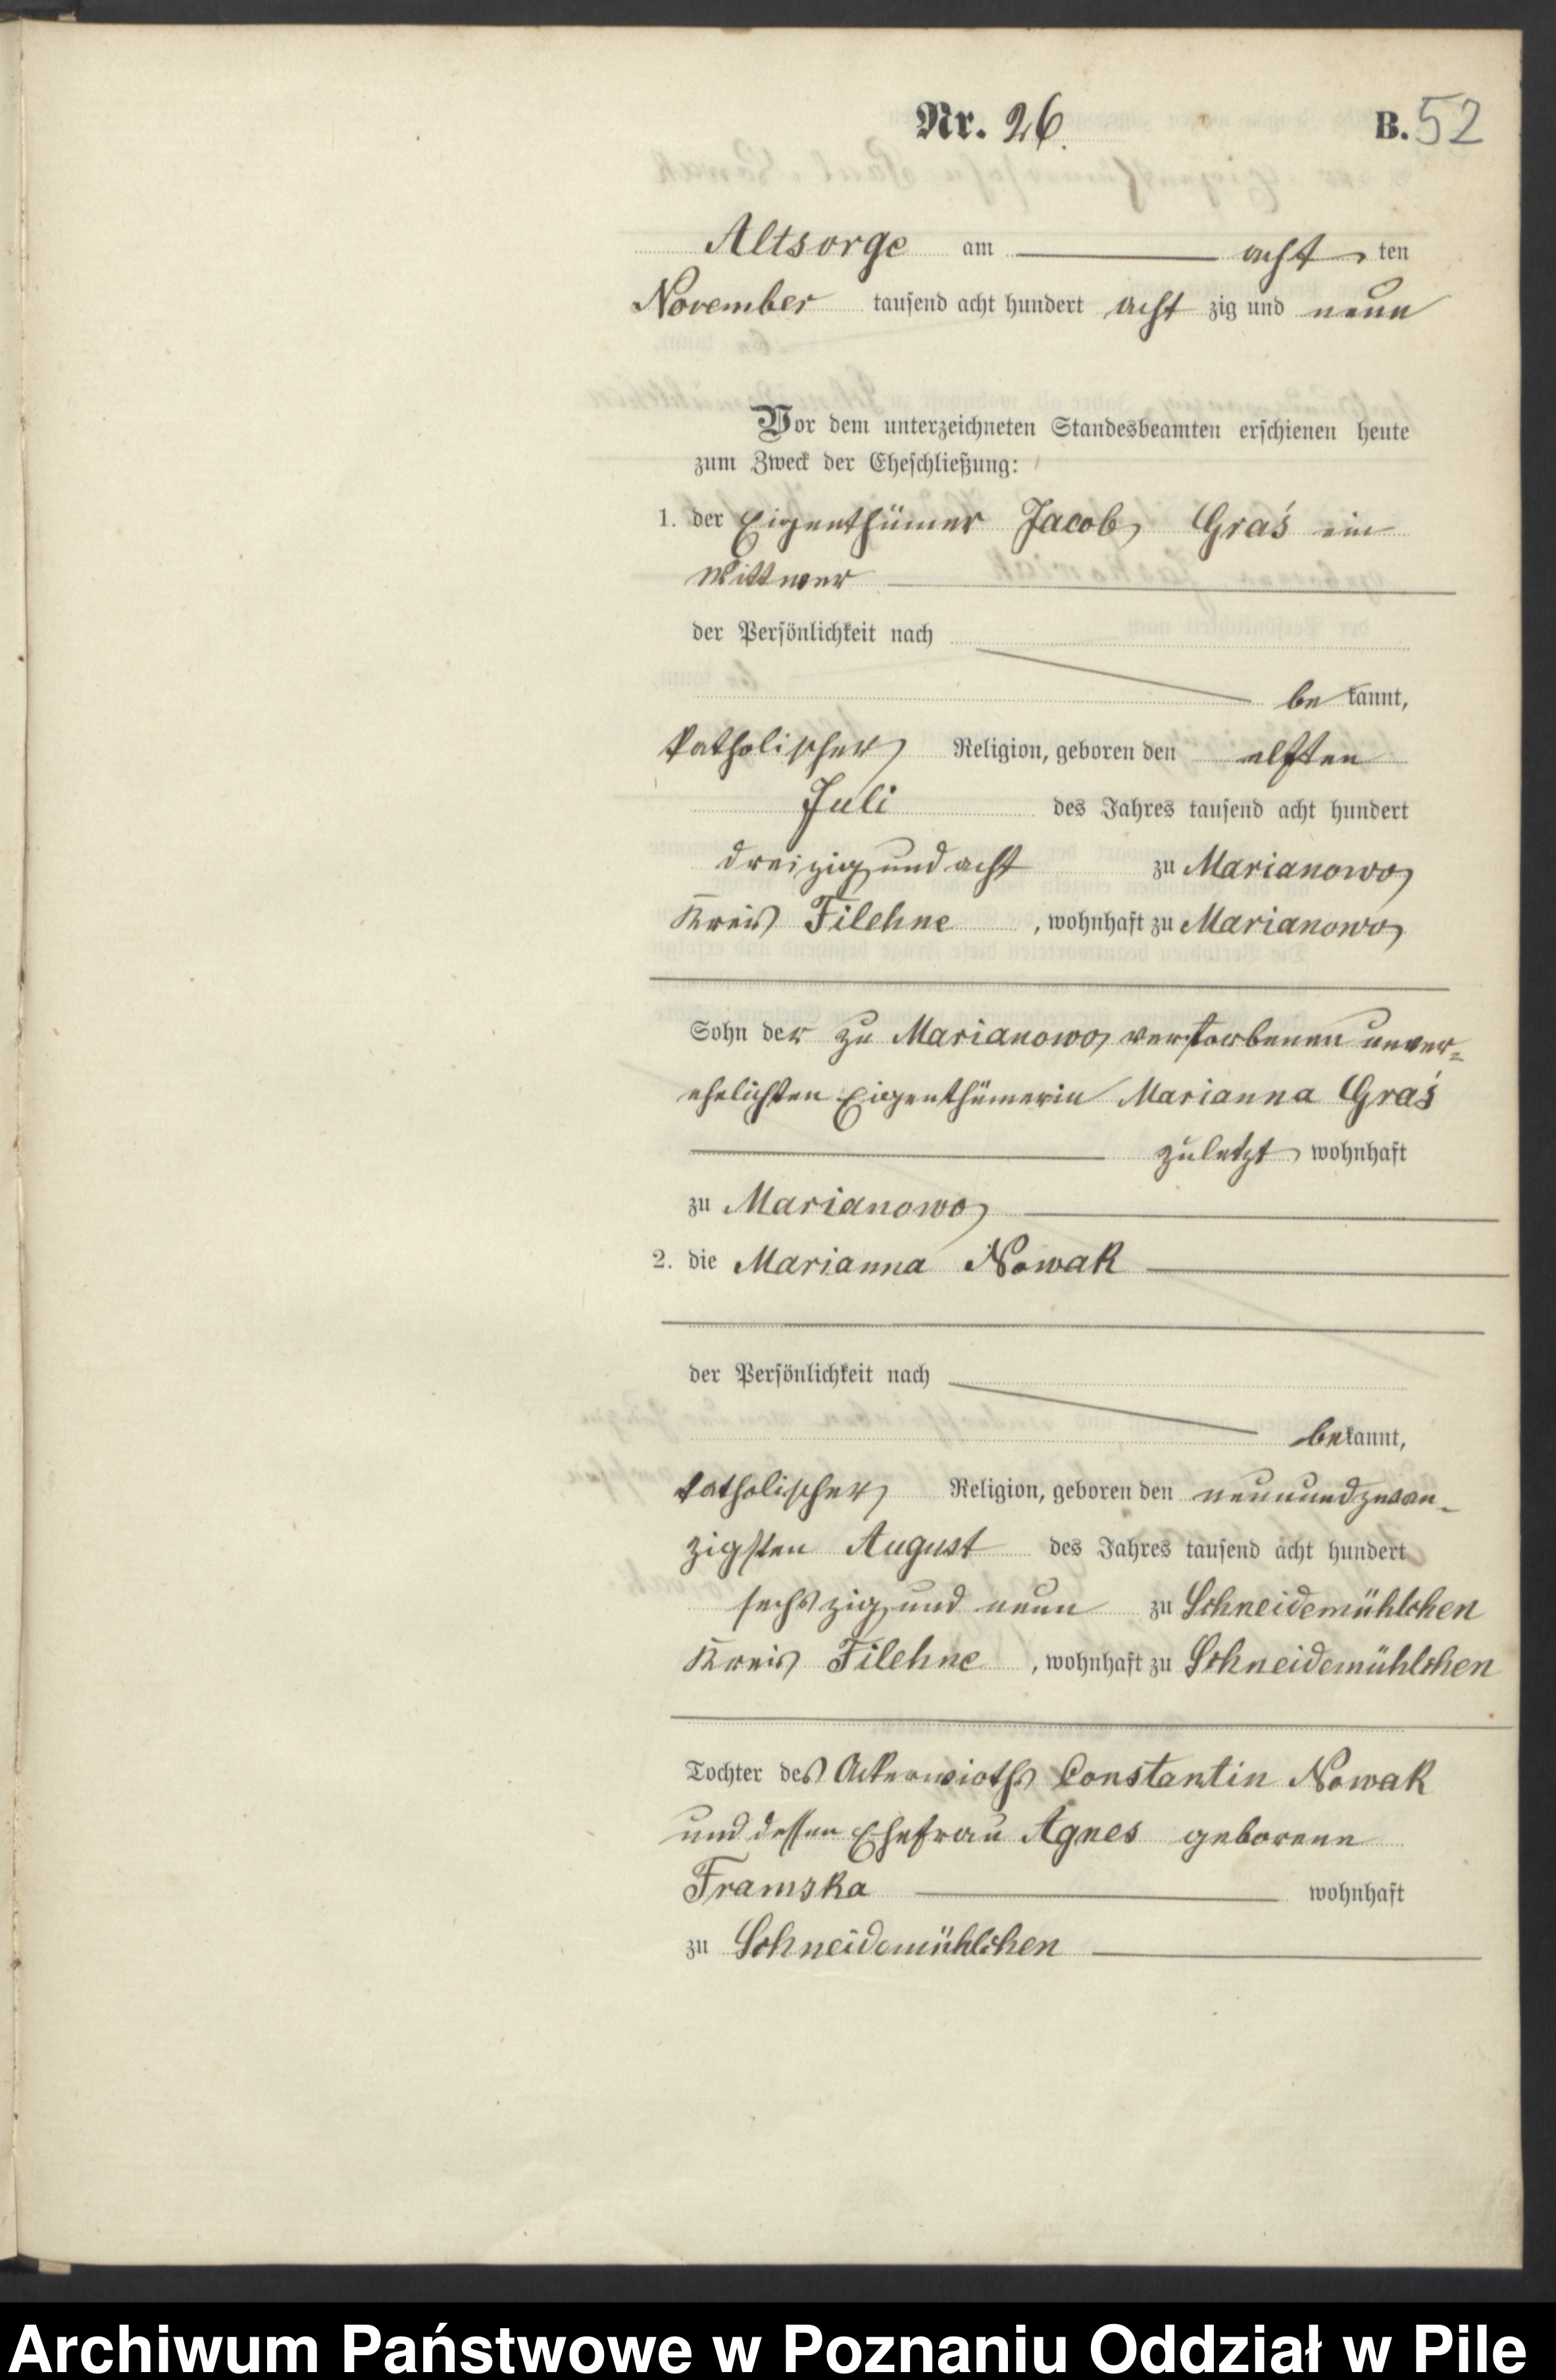 Nr. 26. B. 52
Altsorge am acht ten
November tausend acht hundert acht zig und neun
Vor dem unterzeichneten Standesbeamten erschienen heute
zum Zweck der Eheschließung:
1. der Eigenthümer Jacob Graś ein
Wittwer
der Persönlichkeit nach
be kannt,
katholischer Religion, geboren den elften
Juli des Jahres tausend acht hundert
dreizig und acht zu Marianowo
Kreis Filehne, wohnhaft zu Marianowo
Sohn der zu Marianowo verstorbenen unver=
ehelichten Eigenthümerin Marianna Graś
zuletzt wohnhaft
zu Marianowo
2. die Marianna Nowak
der Persönlichkeit nach
bekannt,
katholischer Religion, geboren den neunundzwan-
zigsten August des Jahres tausend acht hundert
sechszig und neun zu Schneidemühlchen
Kreis Filehne, wohnhaft zu Schneidemühlchen
Tochter des Ackerwirths Constantin Nowak
und dessen Ehefrau Agnes geborene
Framska wohnhaft
zu Schneidemühlchen
Archiwum Państwowe w Poznaniu Oddział w Pile